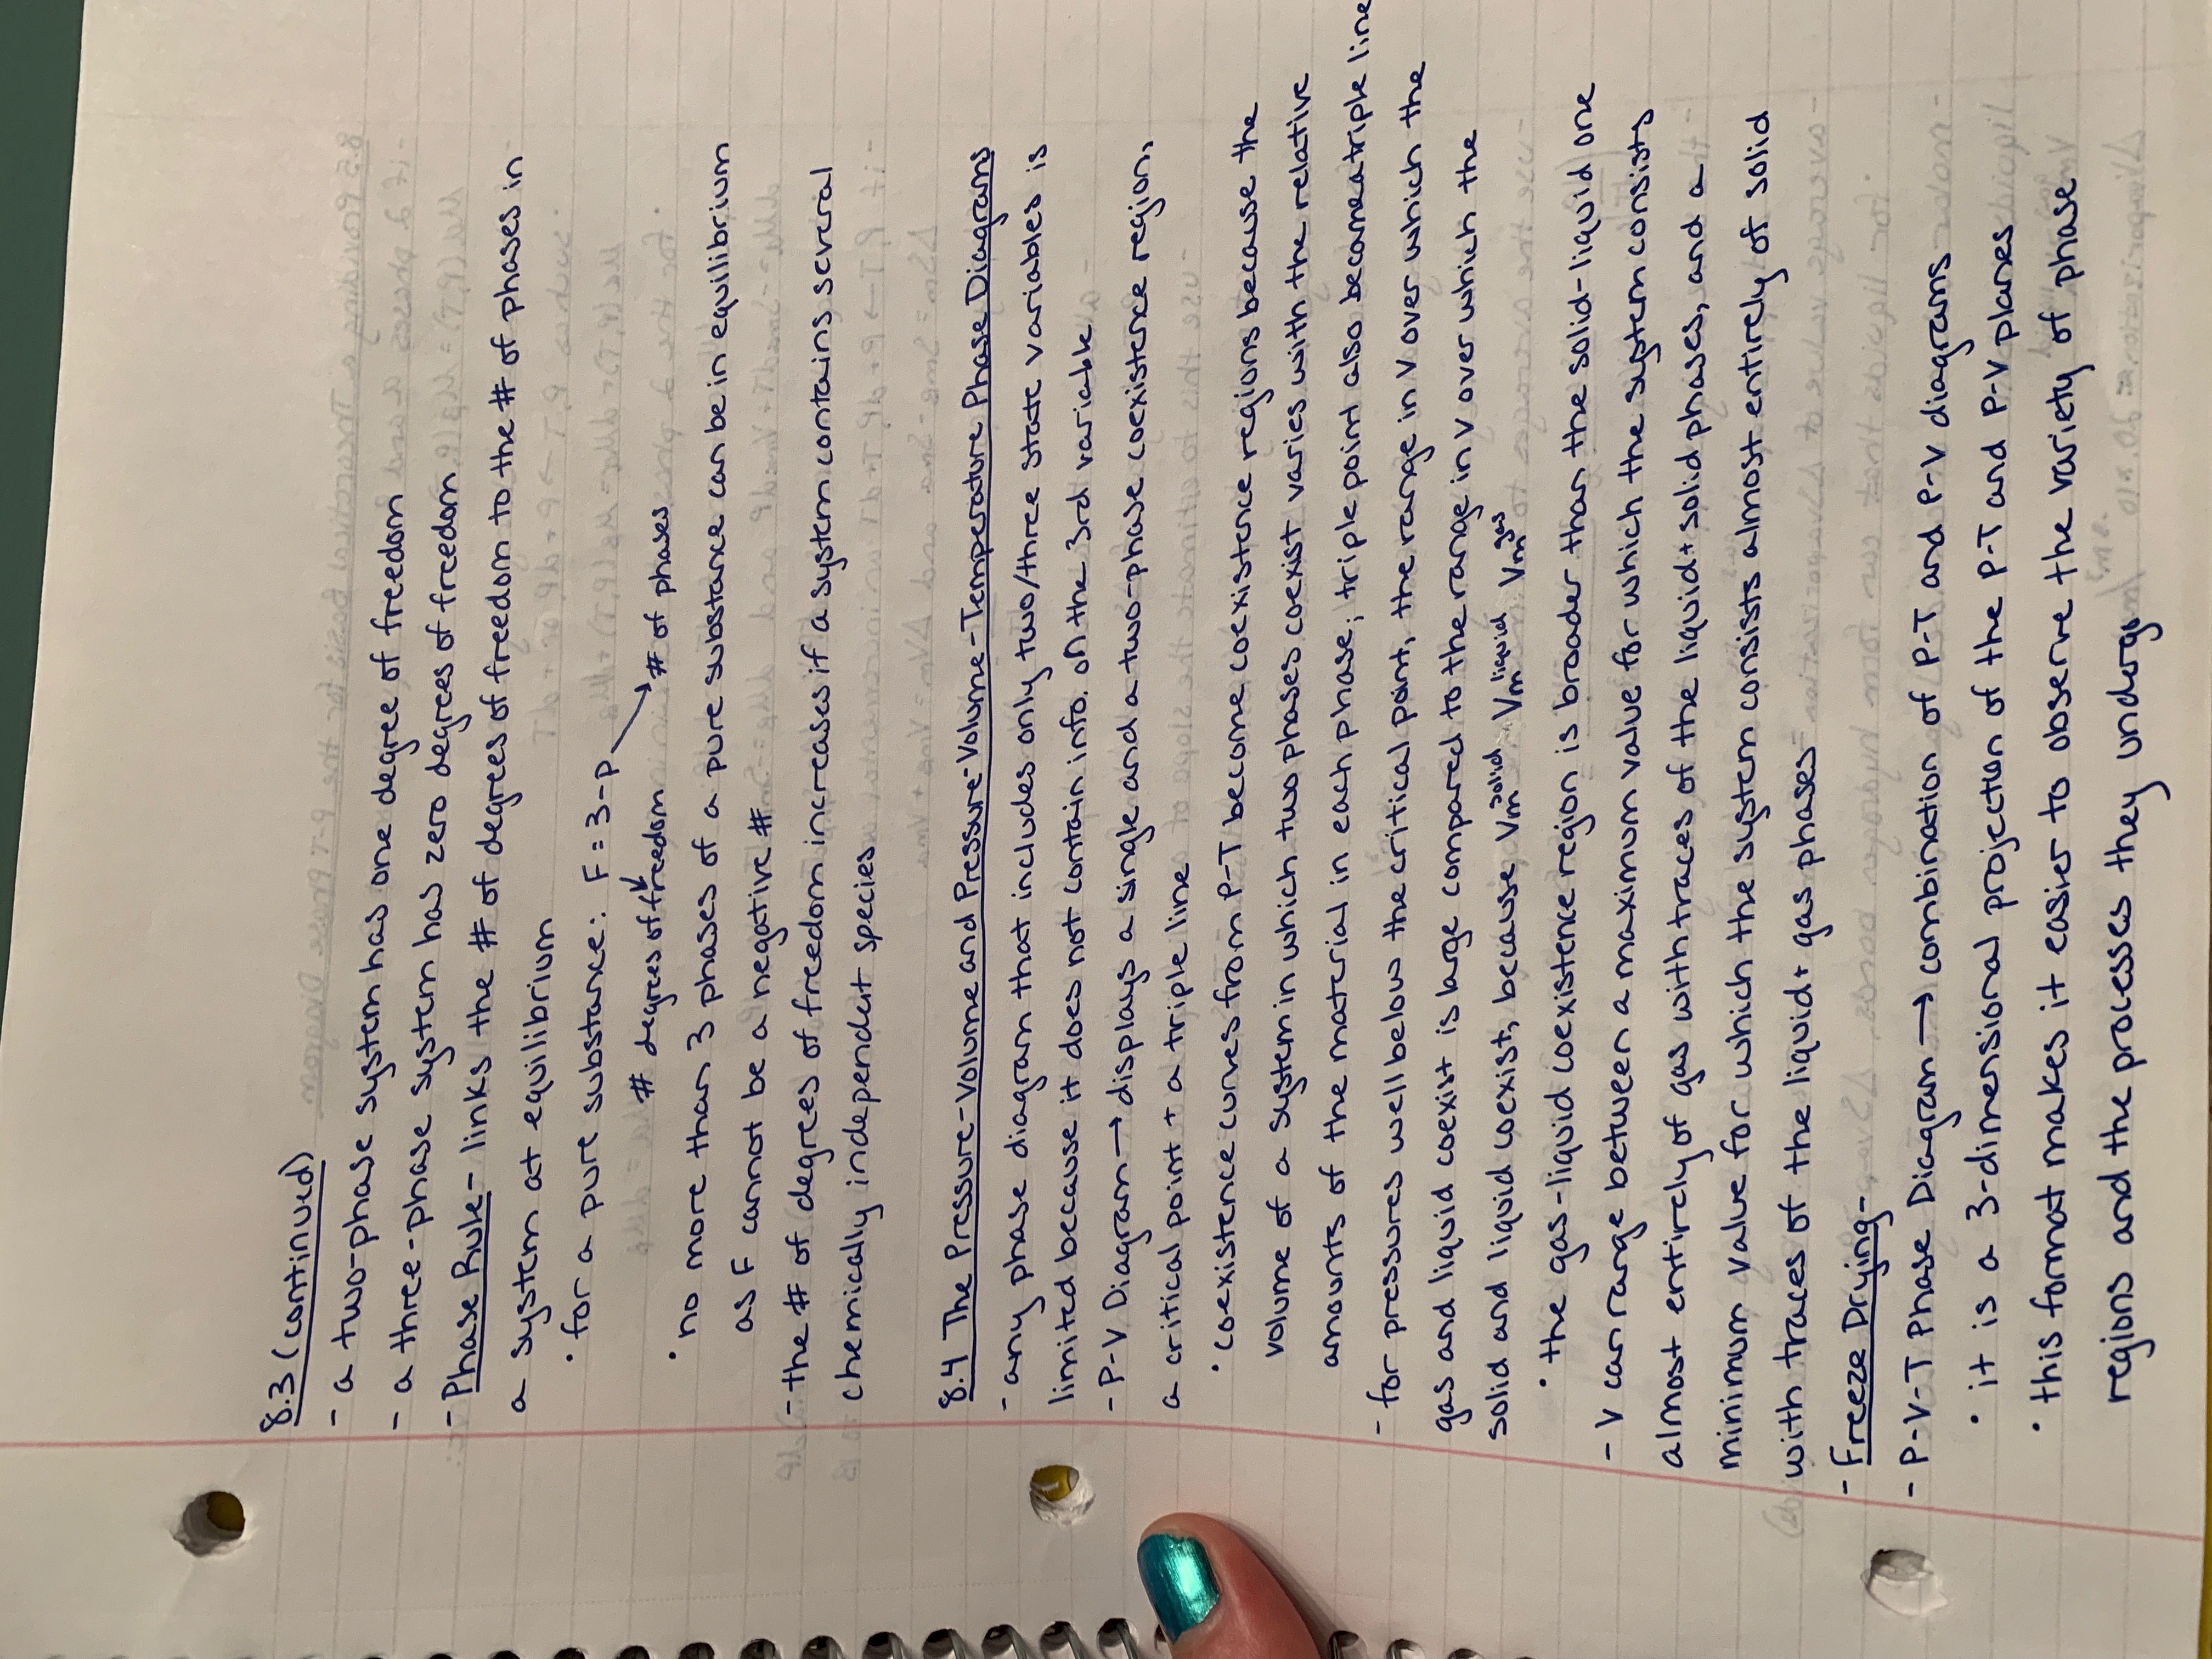 8.3 (continued)
- a two-phase system has one degree of freedom
- a three-phase system has zero degrees of freedom
- Phase Rule - links the # of degrees of freedom to the # of phases in
a system at equilibrium
• for a pure substance: F = 3-p
# degrees of freedom # of phases
• no more than 3 phases of a pure substance can be in equilibrium
as F cannot be a negative #
- the # of degrees of freedom increases if a system contains several
chemically independent species
8.4 The Pressure-Volume and Pressure-Volume-Temperature Phase Diagrams
- any phase diagram that includes only two/three state variables is
limited because it does not contain info. on the 3rd variable
- P-V Diagram → displays a single and a two-phase coexistence region,
a critical point + a triple line
• coexistence curves from P-T become coexistence regions because the
volume of a system in which two phases coexist varies with the relative
amounts of the material in each phase; triple point also became a triple line
- for pressures well below the critical point, the range in V over which the
gas and liquid coexist is large compared to the range in V over which the
solid and liquid coexist, because Vm^solid Vm^liquid Vm^gas
• the gas-liquid coexistence region is broader than the solid-liquid one
- V can range between a maximum value for which the system consists
almost entirely of gas with traces of the liquid + solid phases, and a
minimum value for which the system consists almost entirely of solid
with traces of the liquid + gas phases
- Freeze Drying -
- P-V-T Phase Diagram → combination of P-T and P-V diagrams
• it is a 3-dimensional projection of the P-T and P-V planes
• this format makes it easier to observe the variety of phase
regions and the processes they undergo